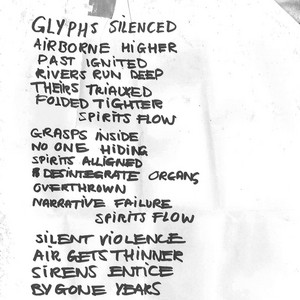 GLYPHS SILENCED
AIRBORNE HIGHER
PAST IGNITED
RIVERS RUN DEEP
THEIRS TRIALXED
FOLDED TIGHTER
SPIRITS FLOW
GRASPS INSIDE
NO ONE HIDING
SPIRITS ALLIGNED
DESINTEGRATE ORGANS
OVERTHROWN
NARRATIVE FAILURE
SPIRITS FLOW
SILENT VIOLENCE
AIR GETS THINNER
SIRENS ENTICE
BYGONE YEARS